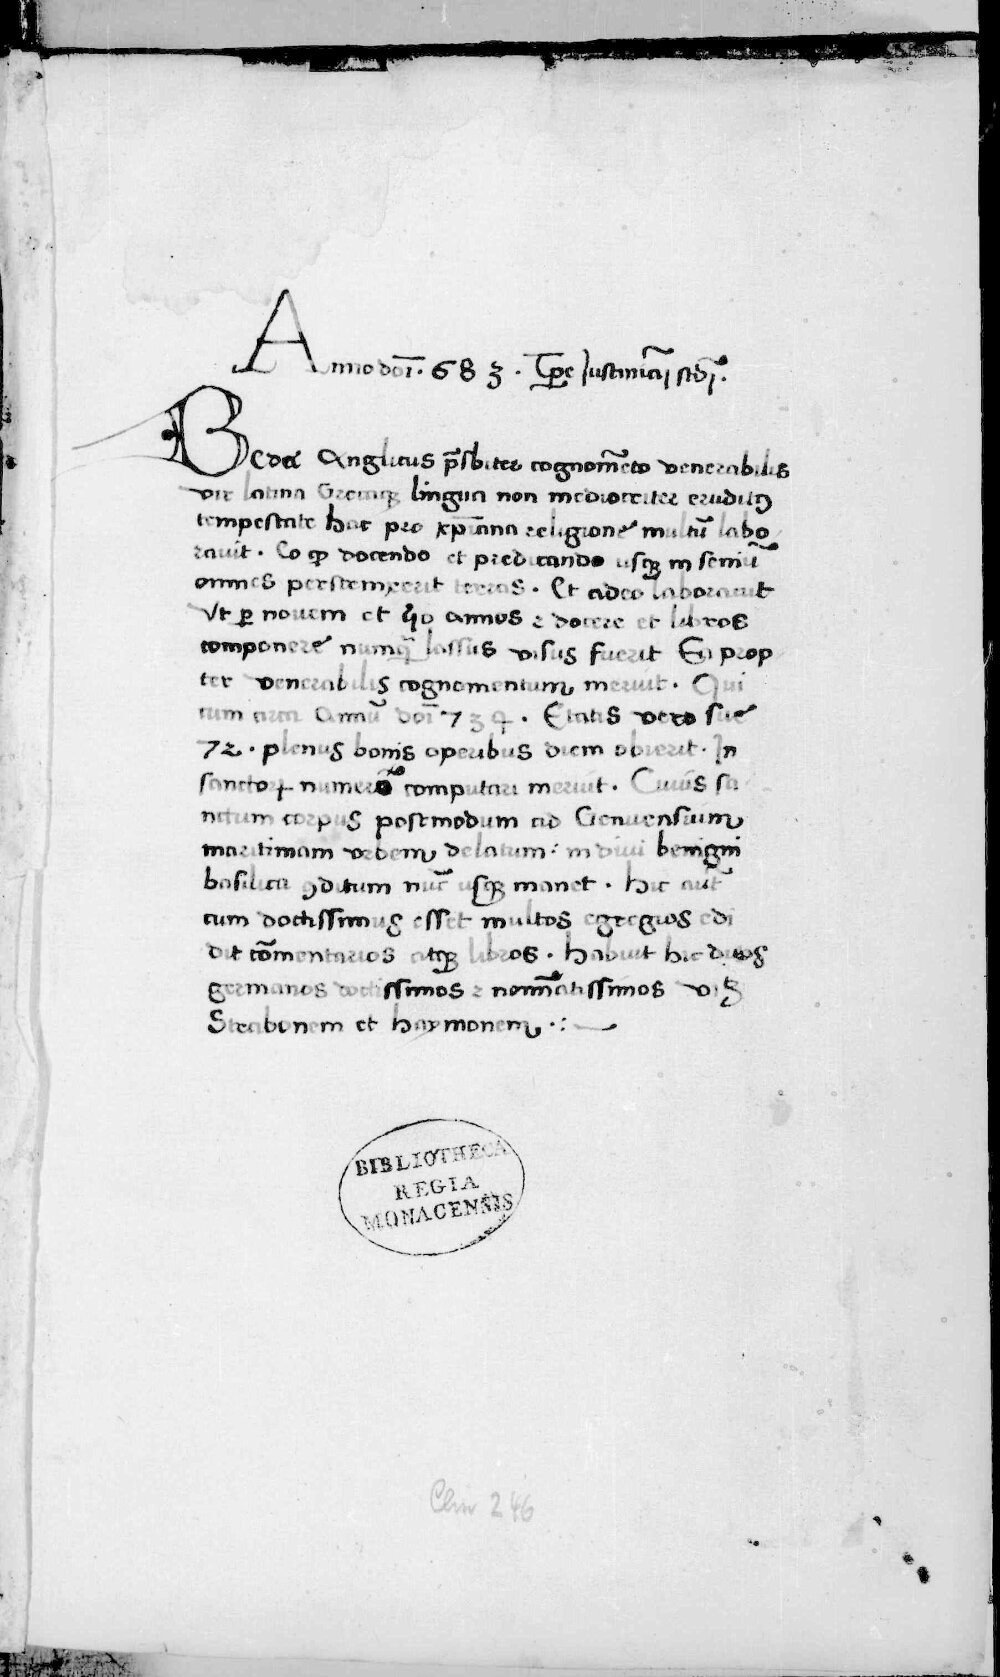 Anno doī. 683. Tp̄e Justiniāi sc̄di.
Beda Anglicus p̄sbiter cognom̄eto venerabilis
vir latina Grecaq; lingua non mediocriter eruditꝯ
tempestate hac pro xp̄iana religione multū labo
rauit. Eo ꝙ docendo et predicando usq; in seniū
omnes perstrinxerit terras. Et adeo laborauit
Vt ꝑ nouem et 40 annos ⁊ docere et libros
componere numq̄ lassus visus fuerit Ea prop
ter venerabilis cognomentum meruit. Qui
cum circa Annū doī 734. Etatis vero sue
72. plenus bonis operibus diem obierit. In
sanctoꝝ numero computari meruit. Cuius sa
nctum corpus postmodum ad Genuensium
maritimam vrbem delatum: in diui benigni
basilica ꝯditum nūc usq; manet. hic aut̄
cum doctissimus esset multos egregios edi
dit cōmentarios atq; libros. habuit hic duos
germanos doctissimos ⁊ nomīatissimos viꝫ
Strabonem et haymonem .:
BIBLIOTHECA
REGIA
MONACENSIS
Clm 246